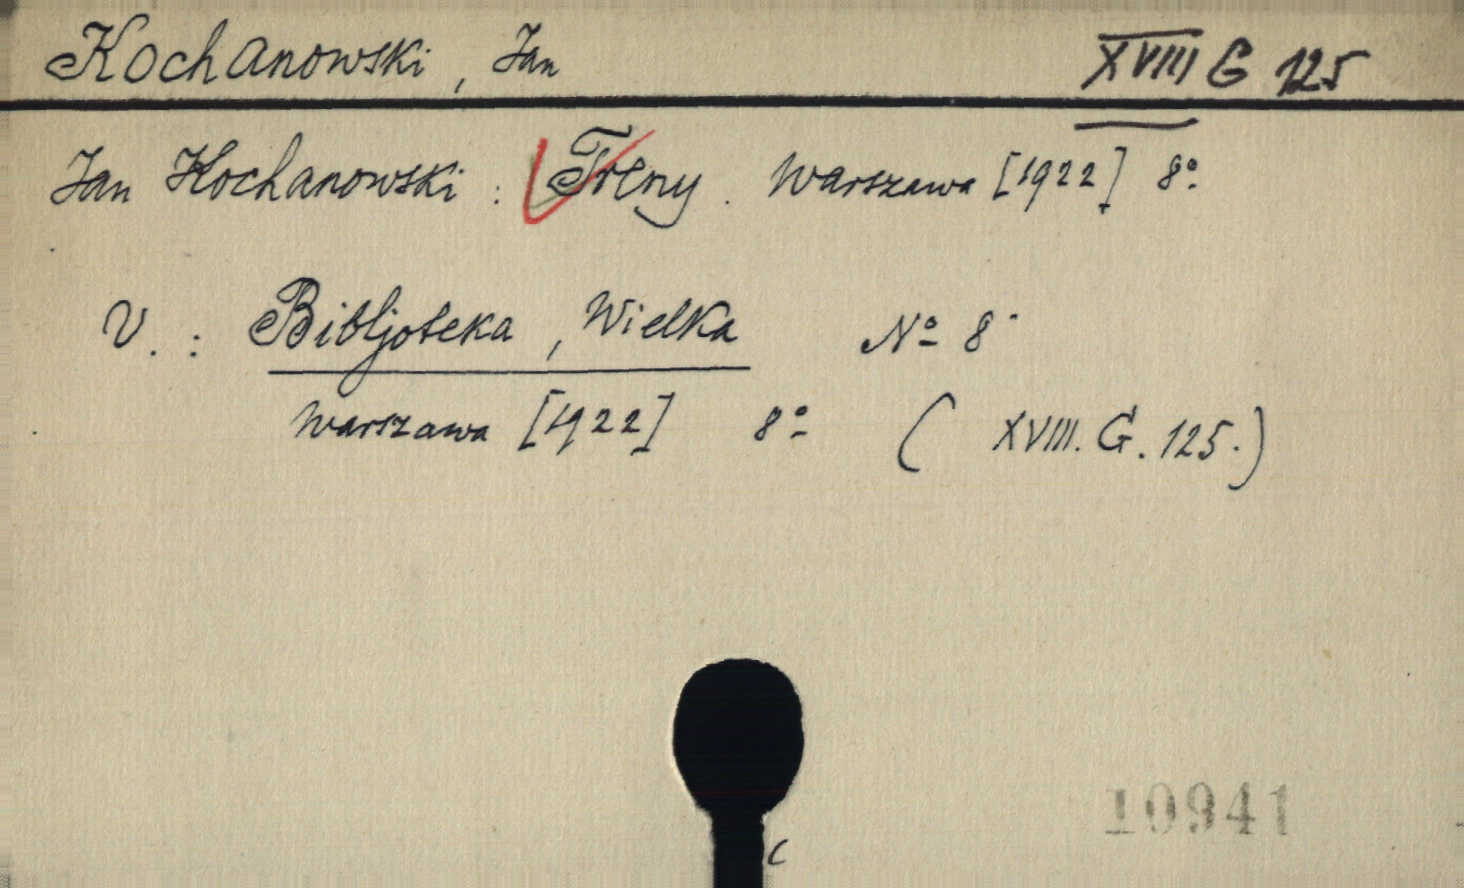 Kochanowski, Jan XVIII G 125
Jan Kochanowski: Treny. Warszawa [1922] 8º
V.: Bibljoteka, Wielka Nº 8
Warszawa [1922] 8º (XVIII. G. 125.)
10941
C